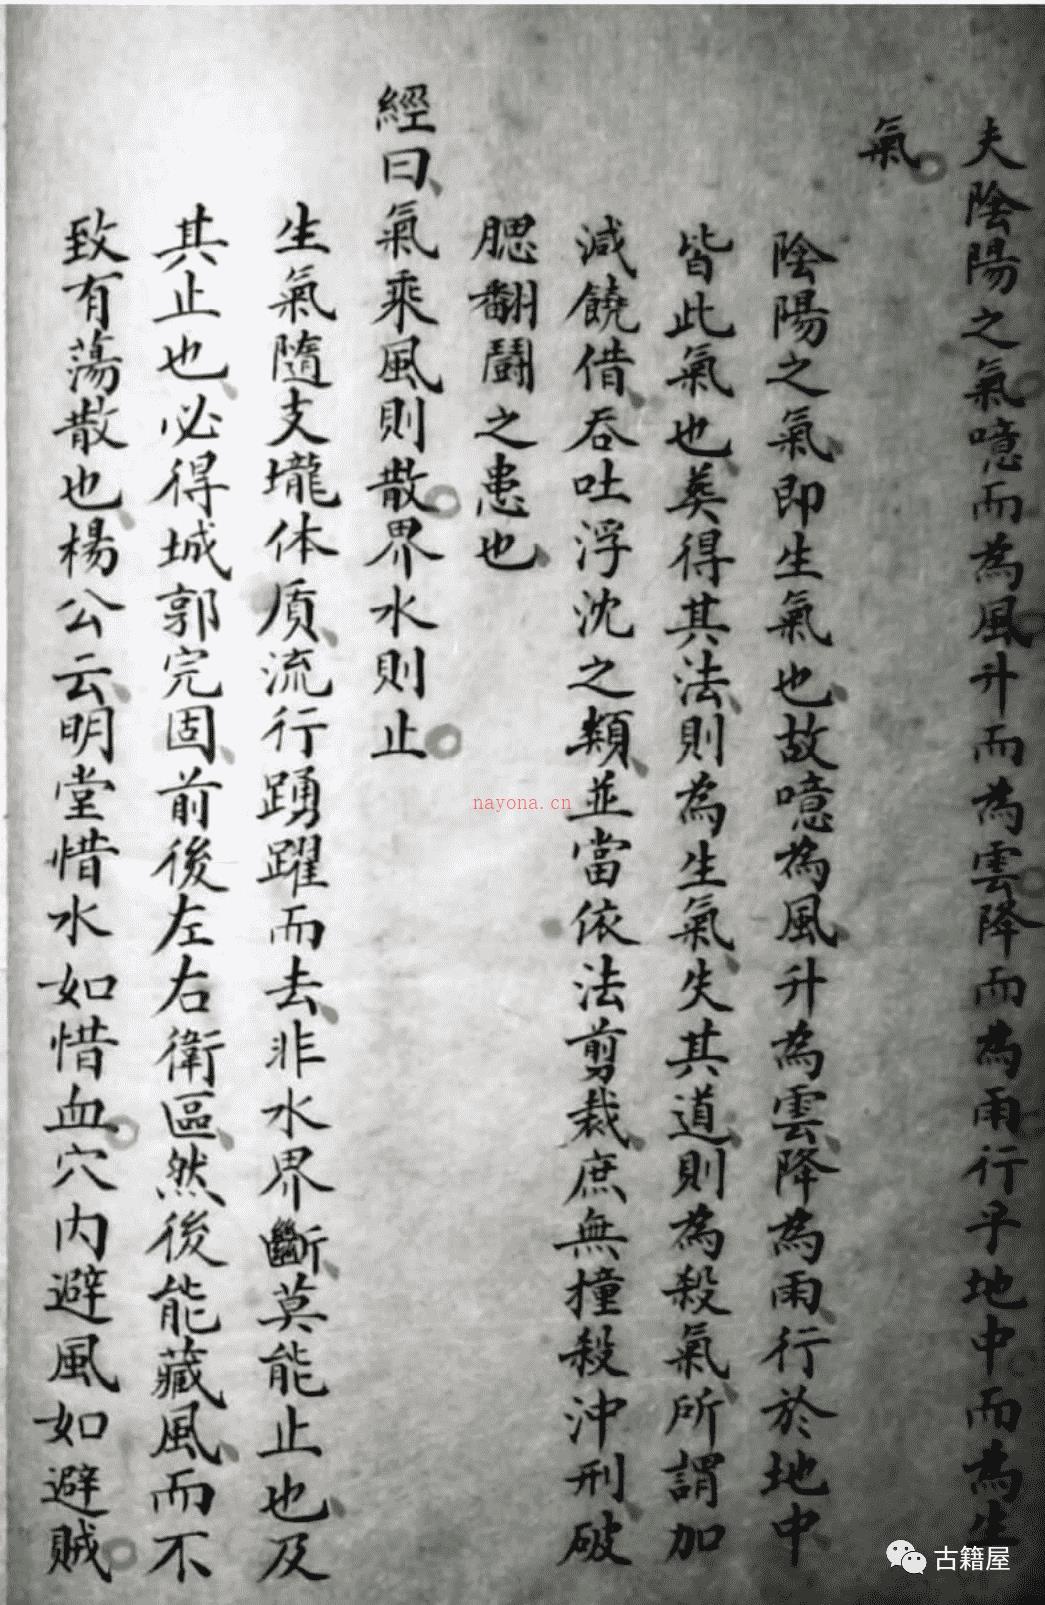 夫陰陽之氣噫而為風升而為雲降而為雨行乎地中而為生
氣
陰陽之氣即生氣也故噫為風升為雲降為雨行於地中
皆此氣也葬得其法則為生氣失其道則為殺氣所謂加
減饒借吞吐浮沈之類並當依法剪裁庶無撞殺沖刑破
腮翻鬪之患也
經曰氣乘風則散界水則止
生氣隨支壠体質流行踴躍而去非水界斷莫能止也及
其止也必得城郭完固前後左右衛區然後能藏風而不
致有蕩散也楊公云明堂惜水如惜血穴內避風如避賊
nayona.cn
古籍屋